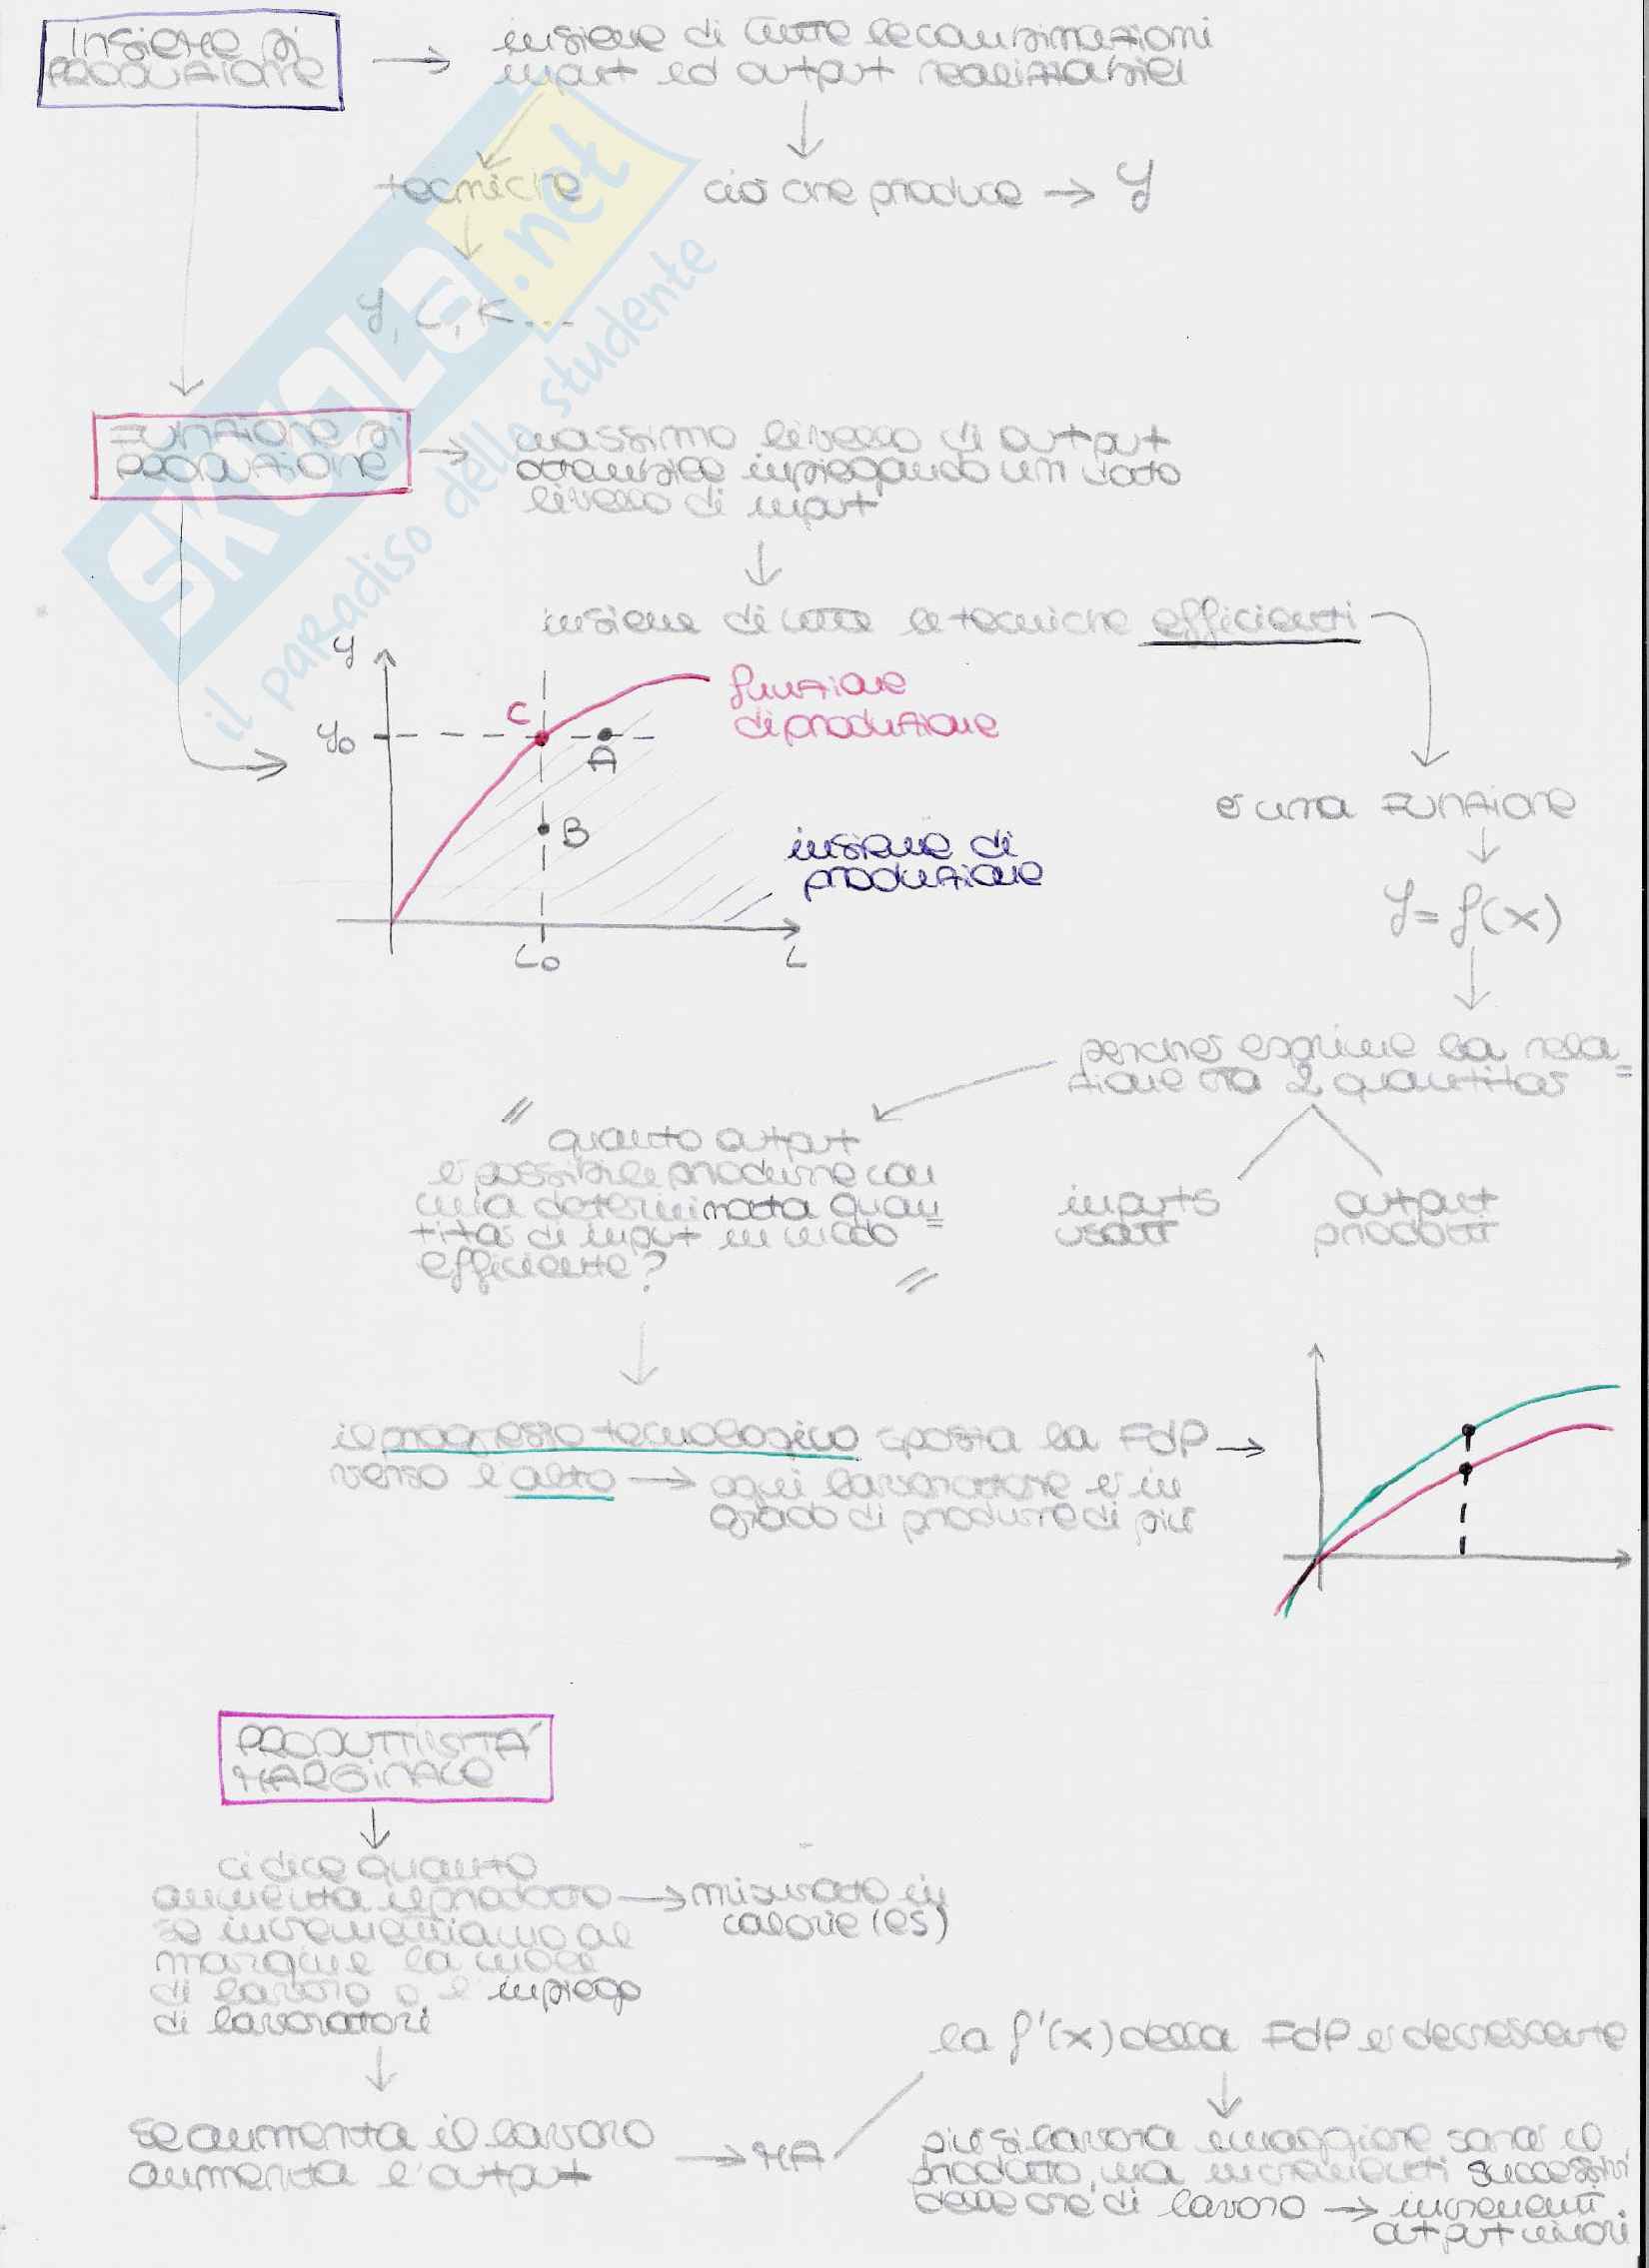 INSIEME DI
PRODUZIONE
insieme di tutte le combinazioni
input ed output realizzabili
tecniche
ciò che produce → Y
Y, L, K...
FUNZIONE DI
PRODUZIONE
massimo livello di output
ottenibile impiegando un dato
livello di input
insieme di tutte le tecniche efficienti
Y
funzione
di produzione
C
Y0
A
B
insieme di
produzione
L0
L
è una FUNZIONE
Y = f(x)
perchè esprime la rela=
zione tra 2 quantità
"
quanto output
è possibile produrre con
una determinata quan=
tità di input in modo
efficiente?
"
inputs
usati
output
prodotti
il progresso tecnologico sposta la FdP
verso l'alto → ogni lavoratore è in
grado di produrre di più
PRODUTTIVITÀ
MARGINALE
ci dice quanto
aumenta il prodotto → misurato in
calorie (es)
se incrementiamo al
margine la mole
di lavoro o l'impiego
di lavoratori
la f'(x) della FdP è decrescente
se aumenta il lavoro
aumenta l'output
→ MA
più si lavora maggiore sarà il
prodotto, ma incrementi successivi
delle ore di lavoro → incrementi
output minori
SKUOLA.net
il paradiso dello studente